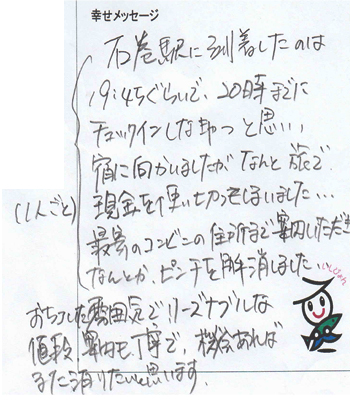 幸せメッセージ
石巻駅に到着したのは
19:45ぐらいで、20時までに
チェックインしなきゃっと思い、
宿に向かいましたが なんと 旅で
現金を使い切ってしまいました…
(1人ごと)
最寄のコンビニの住所まで案内いただき
なんとか、ピンチを解消しました…
おちついた雰囲気でリーズナブルな
値段、案内も丁寧で、機会あれば
また泊りたいと思います。